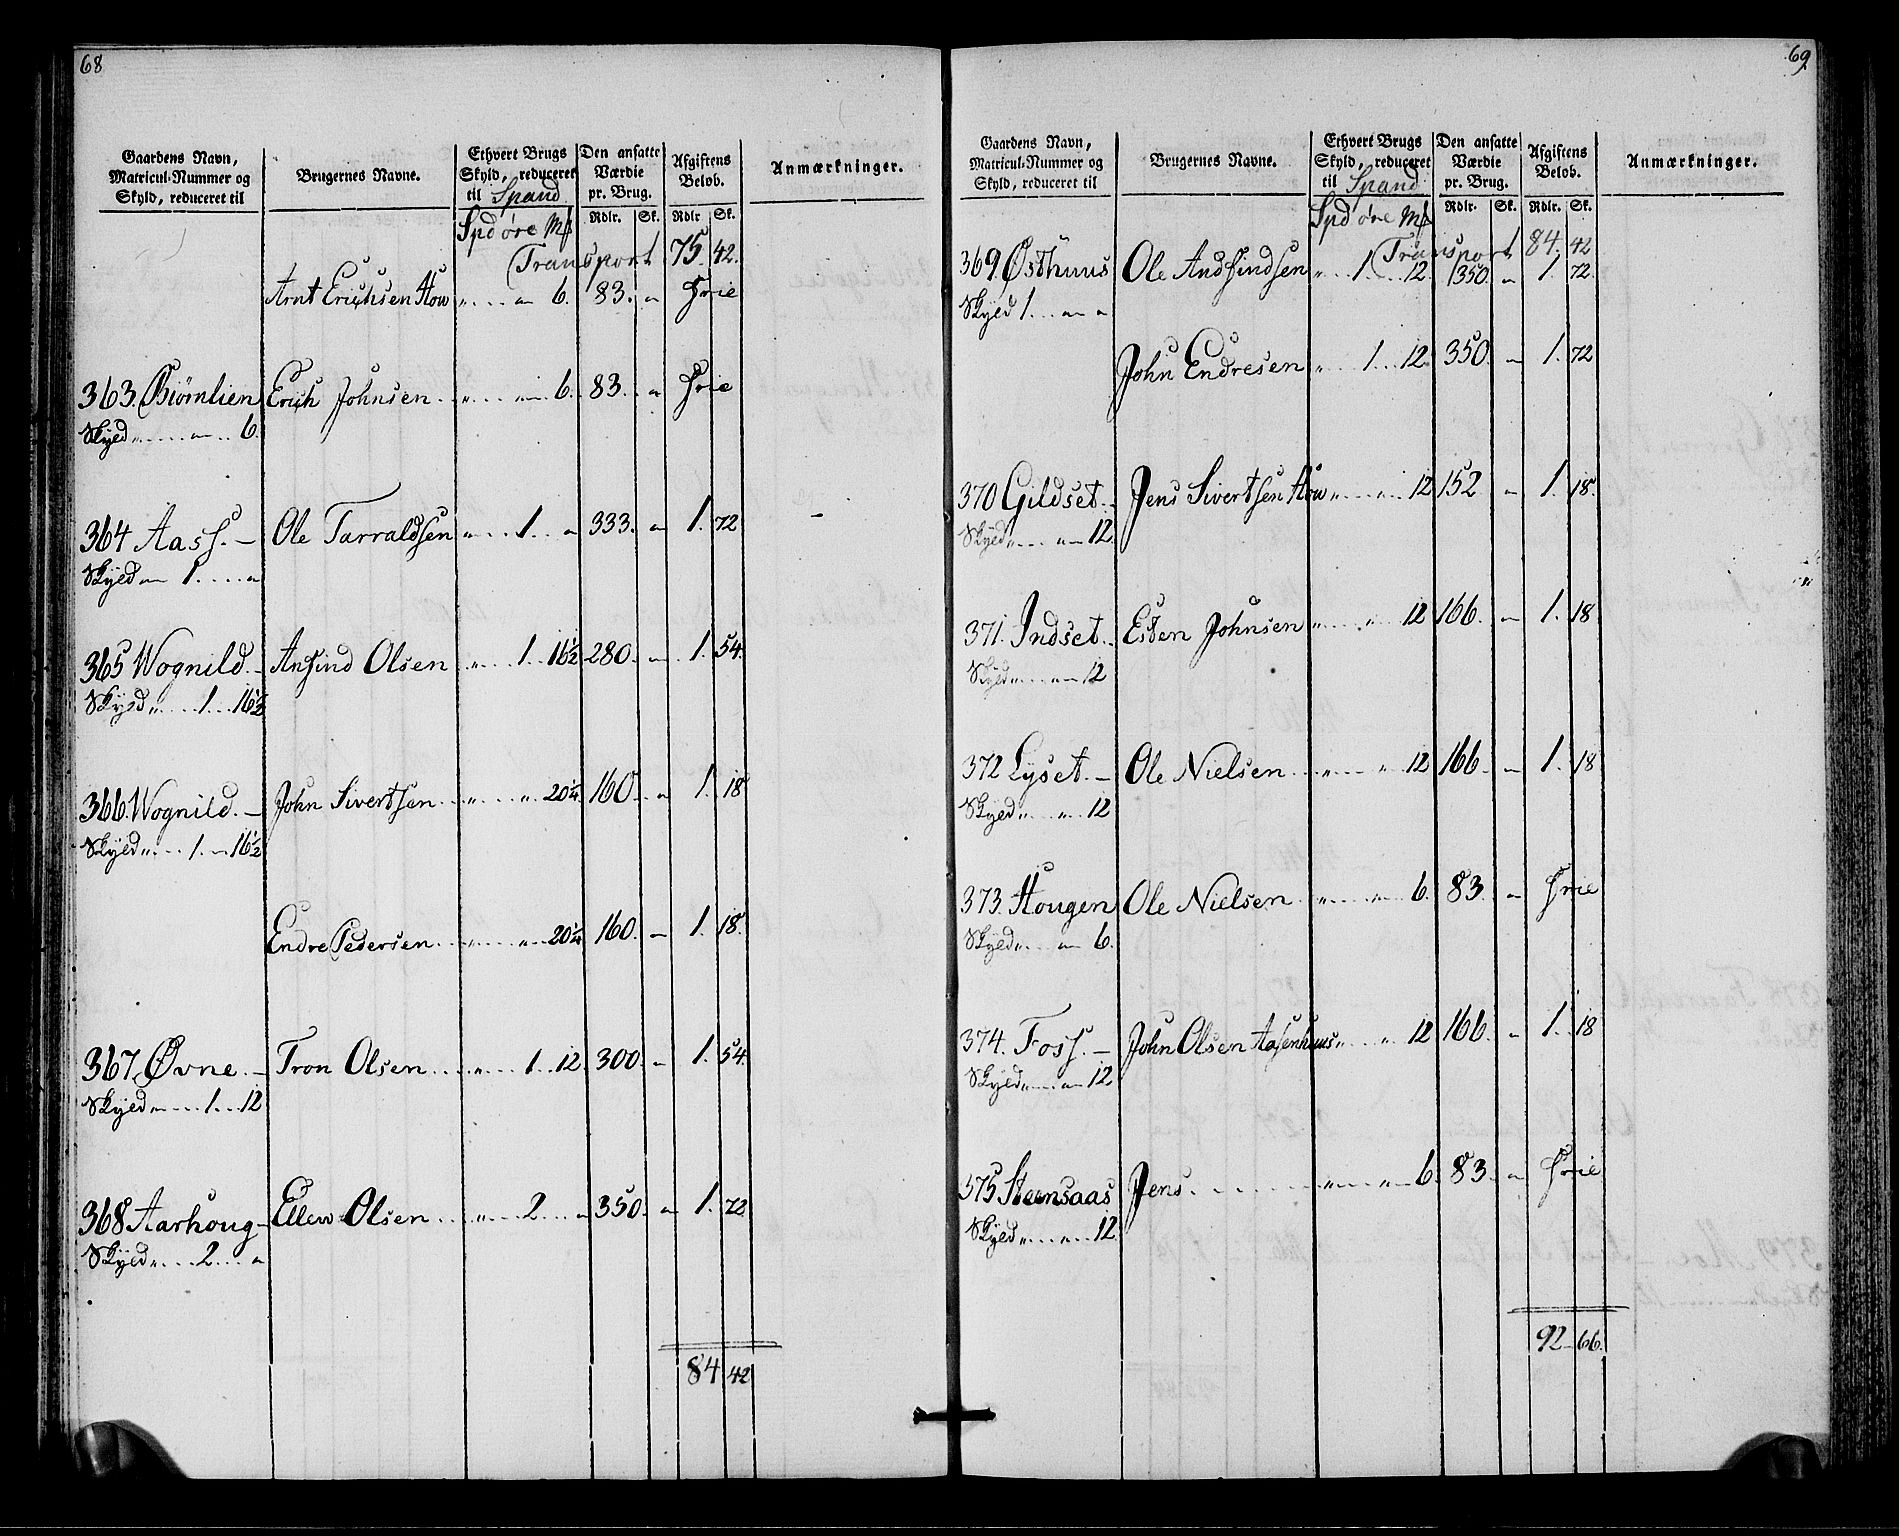 68
Gaardens Navn, Matricul-Nummer og Skyld, reduceret til | Brugernes Navne. | Ethvert Brugs Skyld, reduceret til Spand | Den ansatte Værdie pr. Brug. | Afgiftens Beløb. | Anmærkninger.
Spd øre Mſ | Rdlr. | Sk. | Rdlr | Sk.
Transport 75. 42.
Arnt Erichsen How „ „ 6. 83. „ Frie
363. Biørnlien Erich Johnsen „ „ 6. 83. „ Frie
Skyld „ „ 6.
364 Aass. – Ole Tarraldsen „ 1. „ 333. „ 1. 72
Skyld „ 1. „
365 Wognild. – Anfind Olsen „ 1. 16½ 280. „ 1. 54.
Skyld „ 1. 16½
366. Wognild. – John Sivertsen „ „ 20¼ 160. „ 1. 18
Skyld „ 1. 16½
Endre Pedersen „ „ 20¼ 160. – 1. 18.
367. Øvne. – Tron Olsen „ 1. 12. 300. – 1. 54.
Skyld „ 1. 12
368 Aarhoug – Ellew Olsen „ 2. „ 350. „ 1. 72.
Skyld „ 2. „
84. 42
69.
Gaardens Navn, Matricul-Nummer og Skyld, reduceret til | Brugernes Navne. | Ethvert Brugs Skyld, reduceret til Spand | Den ansatte Værdie pr. Brug. | Afgiftens Beløb. | Anmærkninger.
Spd øre Mſ | Rdlr. | Sk. | Rdlr. | Sk.
Transport 84. 42
369. Østhuus Ole Andfindsen „ 1. 12. 350. „ 1. 72.
Skyld 1. „ „
John Endresen „ 1. 12. 350. – 1. 72
370 Gildset. – Jens Sivertsen How „ „ 12 152 „ 1. 18.
Skyld „ „ 12.
371. Indset. Esten Johnsen „ „ 12 166. – 1. 18.
Skyld „ „ 12
372 Lyset. – Ole Nielsen „ „ 12 166. – 1. 18
Skyld „ „ 12
373. Hougen Ole Nielsen „ „ 6. 83. „ Frie
Skyld „ „ 6.
374. Foss. – John Olsen Aasenhuus „ „ 12 166. „ 1. 18
Skyld „ „ 12
375 Steensaas Jens „ „ 6. 83. „ Frie
Skyld „ „ 12.
92. 66.